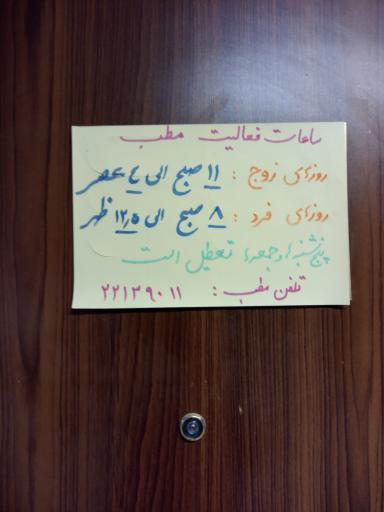 ساعات فعالیت مطب
روزهای زوج : ۱۱ صبح الی ٤ عصر
روزهای فرد : ۸ صبح الی ۱۲٫۵ ظهر
پنج شنبه و جمعه تعطیل است
تلفن مطب : ۲۲۱۳۹۰۱۱